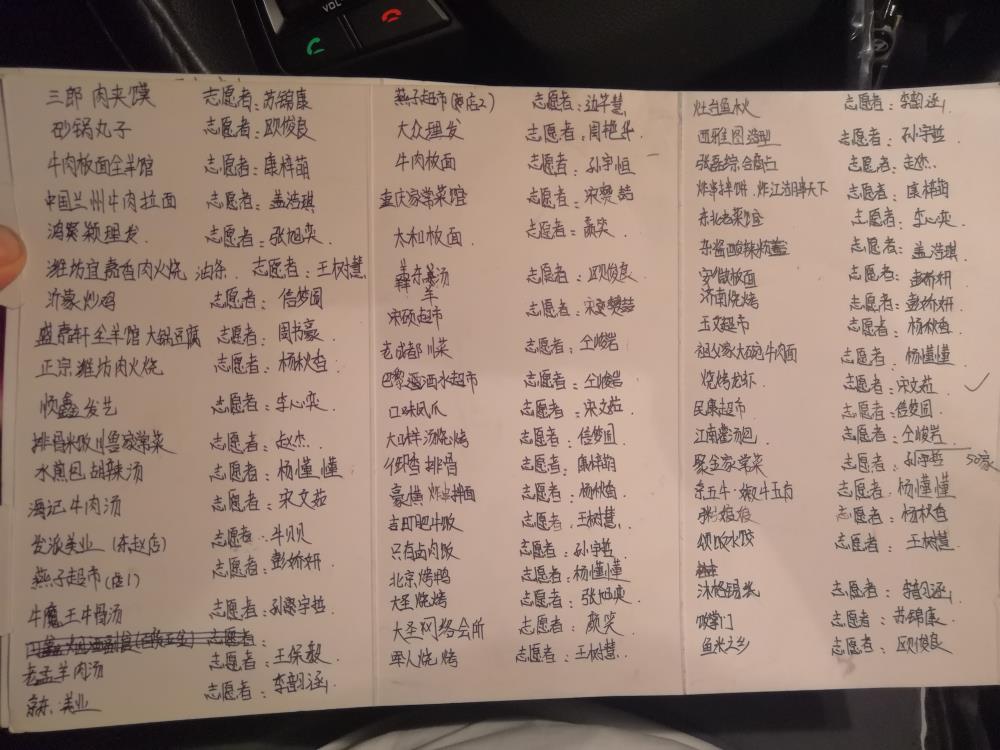 VOL
三郎 肉夹馍 志愿者：苏锦康
砂锅丸子 志愿者：欧俊良
牛肉板面全羊馆 志愿者：康梓萌
中国兰州牛肉拉面 志愿者：盖浩琪
鸿赛颖理发 志愿者：张旭奕
潍坊宜嘉香肉火烧 油条 志愿者：王树慧
沂蒙炒鸡 志愿者：信梦圆
盛嘉轩全羊馆 大锅豆腐 志愿者：周书豪
正宗潍坊肉火烧 志愿者：杨秋香
顺鑫发艺 志愿者：李心奕
排骨米饭川鲁家常菜 志愿者：赵杰
水煎包 胡辣汤 志愿者：杨懂懂
海记牛肉汤 志愿者：宋文茹
发派美业（东赵店） 志愿者：牛贝贝
燕子超市（店1） 志愿者：彭娇妍
牛魔王牛骨汤 志愿者：孙宇拉
志愿者：
老孟羊肉汤 志愿者：王保毅
京东·美业 志愿者：李韵涵
燕子超市（店2） 志愿者：边华慧
大众理发 志愿者：周艳华
牛肉板面 志愿者：孙宇恒
重庆家常菜馆 志愿者：宋樊喆
太和板面 志愿者：颜笑
志愿者：欧俊良
宋硕超市 志愿者：宋樊喆
老成都川菜 志愿者：仝峻岩
巴黎酒水超市 志愿者：仝峻岩
口味凤爪 志愿者：宋文茹
烧烤 志愿者：信梦圆
排骨 志愿者：康梓萌
志愿者：杨秋香
吉町肥牛饭 志愿者：王树慧
只有卤肉饭 志愿者：孙宇哲
北京烤鸭 志愿者：杨懂懂
大圣烧烤 志愿者：张旭奕
大圣网络会所 志愿者：颜笑
军人烧烤 志愿者：王树慧
灶台鱼火 志愿者：李韵涵
西雅图造型 志愿者：孙宇哲
张磊综合商店 志愿者：赵杰
志愿者：康梓萌
东北老菜馆 志愿者：李心奕
志愿者：盖浩琪
安徽板面 志愿者：彭娇妍
济南烧烤 志愿者：彭娇妍
玉文超市 志愿者：杨秋香
祖父家大碗牛肉面 志愿者：杨懂懂
烧烤龙虾 志愿者：宋文茹 ✓
民康超市 志愿者：信梦圆
江南灌汤包 志愿者：仝峻岩
聚全家常菜 志愿者：孙宇哲 50家
志愿者：杨懂懂
志愿者：杨秋香
水饺 志愿者：王树慧
志愿者：李韵涵
掌门 志愿者：苏锦康
鱼米之乡 志愿者：欧俊良